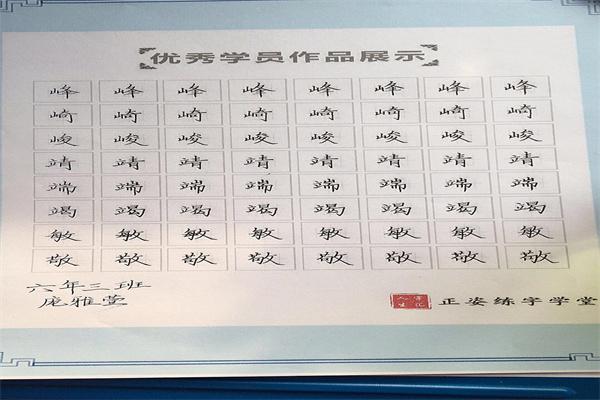 优秀学员作品展示
峰峰峰峰峰峰峰峰
崎崎崎崎崎崎崎崎
峻峻峻峻峻峻峻峻
靖靖靖靖靖靖靖靖
端端端端端端端端
竭竭竭竭竭竭竭竭
敏敏敏敏敏敏敏敏
敬敬敬敬敬敬敬敬
六年三班
庞雅萱
正姿练字学堂